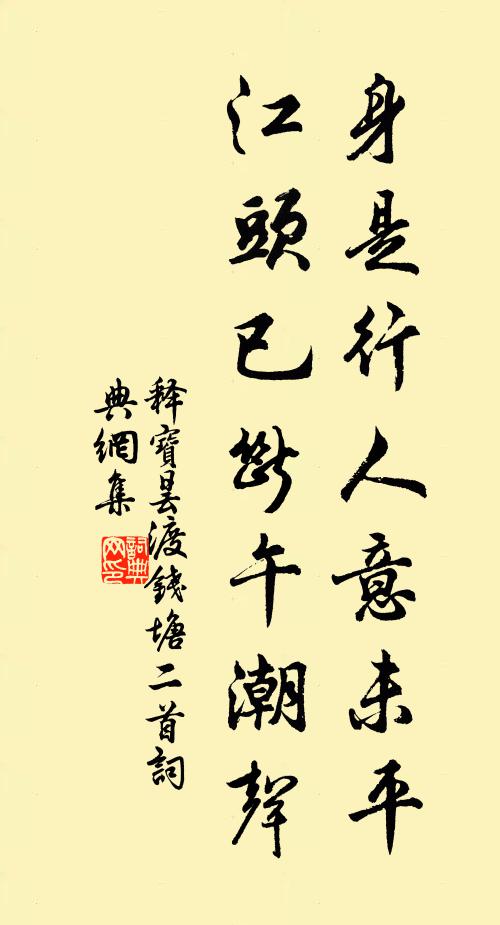 身是行人意未平
江頭已斷午潮聲
释寶曇渡錢塘二首詞
典網集
詞典網印